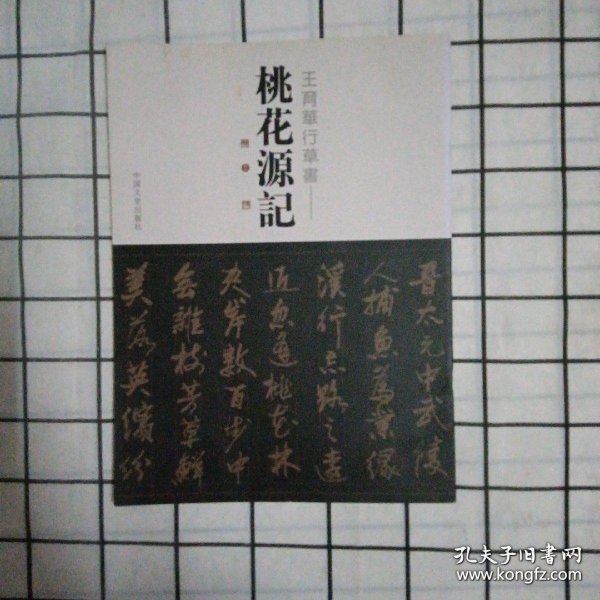 王育華行草書
桃花源記
中國文史出版社
晋太元中武陵
人捕魚為業緣
溪行忘路之遠
近忽逢桃花林
夾岸數百步中
無雜樹芳草鮮
美落英繽紛
孔夫子旧书网
www.kongfz.com